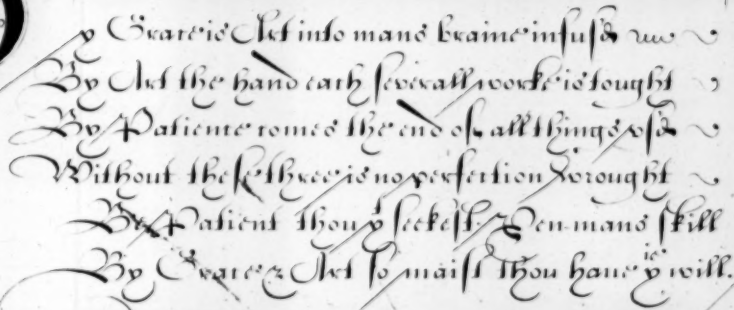 y Grace is Art into mans braine infusd
By Art the hand each severall worke is tought
By Patience comes the end of all things usd
Without these three is no perfection wrought
Be Patient thou yt seekest Pen-mans skill
By Grace & Art so maist thou have yie will.